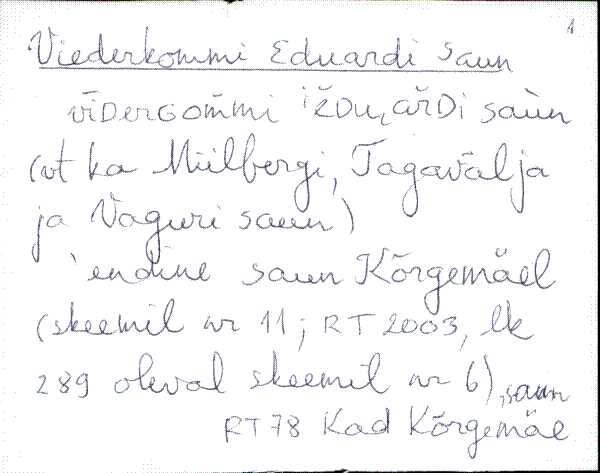 1
Viederkommi Eduardi saun
vīDerGom̄mi iĕDu, ar̆Di saùn
(vt ka Miilbergi, Tagavälja
ja Vaguri saun)
'endine saun Kõrgemäel
(skeemil nr 11; RT 2003, lk
289 oleval skeemil nr 6), saun
RT 78 Kad Kõrgemäe